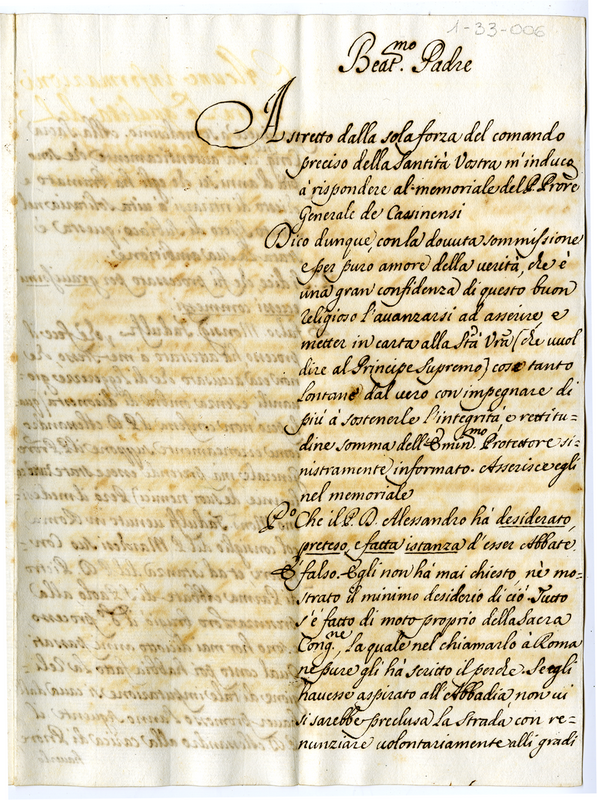 1-33-006
Beat.mo Padre
Astretto dalla sola forza del comando
preciso della Santità Vostra m'induco
à rispondere al memoriale del P. Prore
Generale de Cassinensi
Dico dunque, con la dovuta sommissione
e per puro amore della verità, che è
una gran confidenza di questo buon
religioso l'avanzarsi ad asserire, e
metter in carta alla Stà Vra (che vuol
dire al Principe Supremo) cose tanto
lontane dal vero con impegnare di
più à sostenerle l'integrità, e rettitu=
dine somma dell'Emin.mo Protettore si=
nistramente informato. Asserisce egli
nel memoriale
P.o Che il P. D. Alessandro hà desiderato,
preteso, e fatta istanza d'esser Abbate
È falso. Egli non hà mai chiesto, nè mo=
strato il minimo desiderio di ciò. Tutto
s'è fatto di moto proprio della Sacra
Cong.ne, la quale nel chiamarlo à Roma
ne pure gli hà scritto il perche. Se egli
havesse aspirato all'Abbadia, non vi
si sarebbe preclusa la strada, con re=
nunziare volontariamente alli gradi